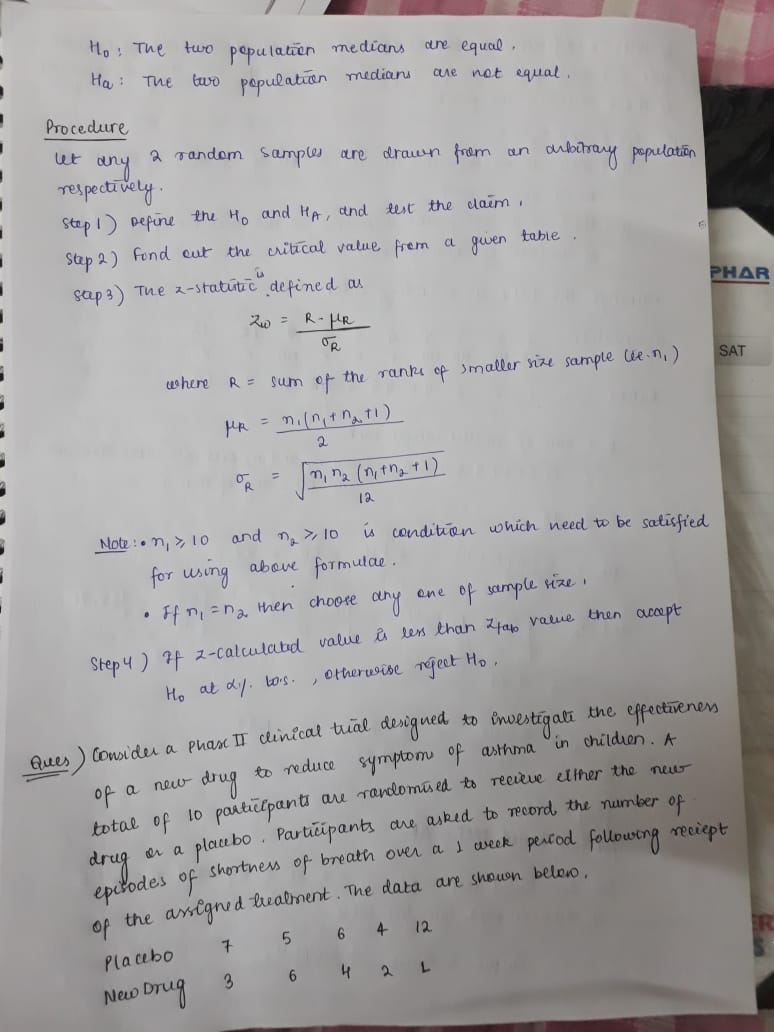 H₀ : The two population medians are equal.
Ha : The two population medians are not equal.
Procedure
let any 2 random samples are drawn from an arbitrary population
respectively.
Step 1) Define the H₀ and H_A, and test the claim.
Step 2) Fond out the critical value from a given table.
Step 3) The z-statistic is defined as
Zw = (R - μR) / σR
where R = sum of the ranks of smaller size sample (ie. n₁)
μR = n₁(n₁+n₂+1) / 2
σR = √(n₁n₂(n₁+n₂+1) / 12)
Note: • n₁ ≥ 10 and n₂ ≥ 10 is condition which need to be satisfied
for using above formulae.
• If n₁ = n₂ then choose any one of sample size.
Step 4) If z-calculated value is less than Ztab value then accept
H₀ at α% l.o.s. , otherwise reject H₀.
Ques) Consider a Phase II clinical trial designed to investigate the effectiveness
of a new drug to reduce symptoms of asthma in children. A
total of 10 participants are randomised to recieve either the new
drug or a placebo. Participants are asked to record the number of
episodes of shortness of breath over a 1 week period following reciept
of the assigned treatment. The data are shown below.
Placebo 7 5 6 4 12
New Drug 3 6 4 2 1
PHAR
SAT